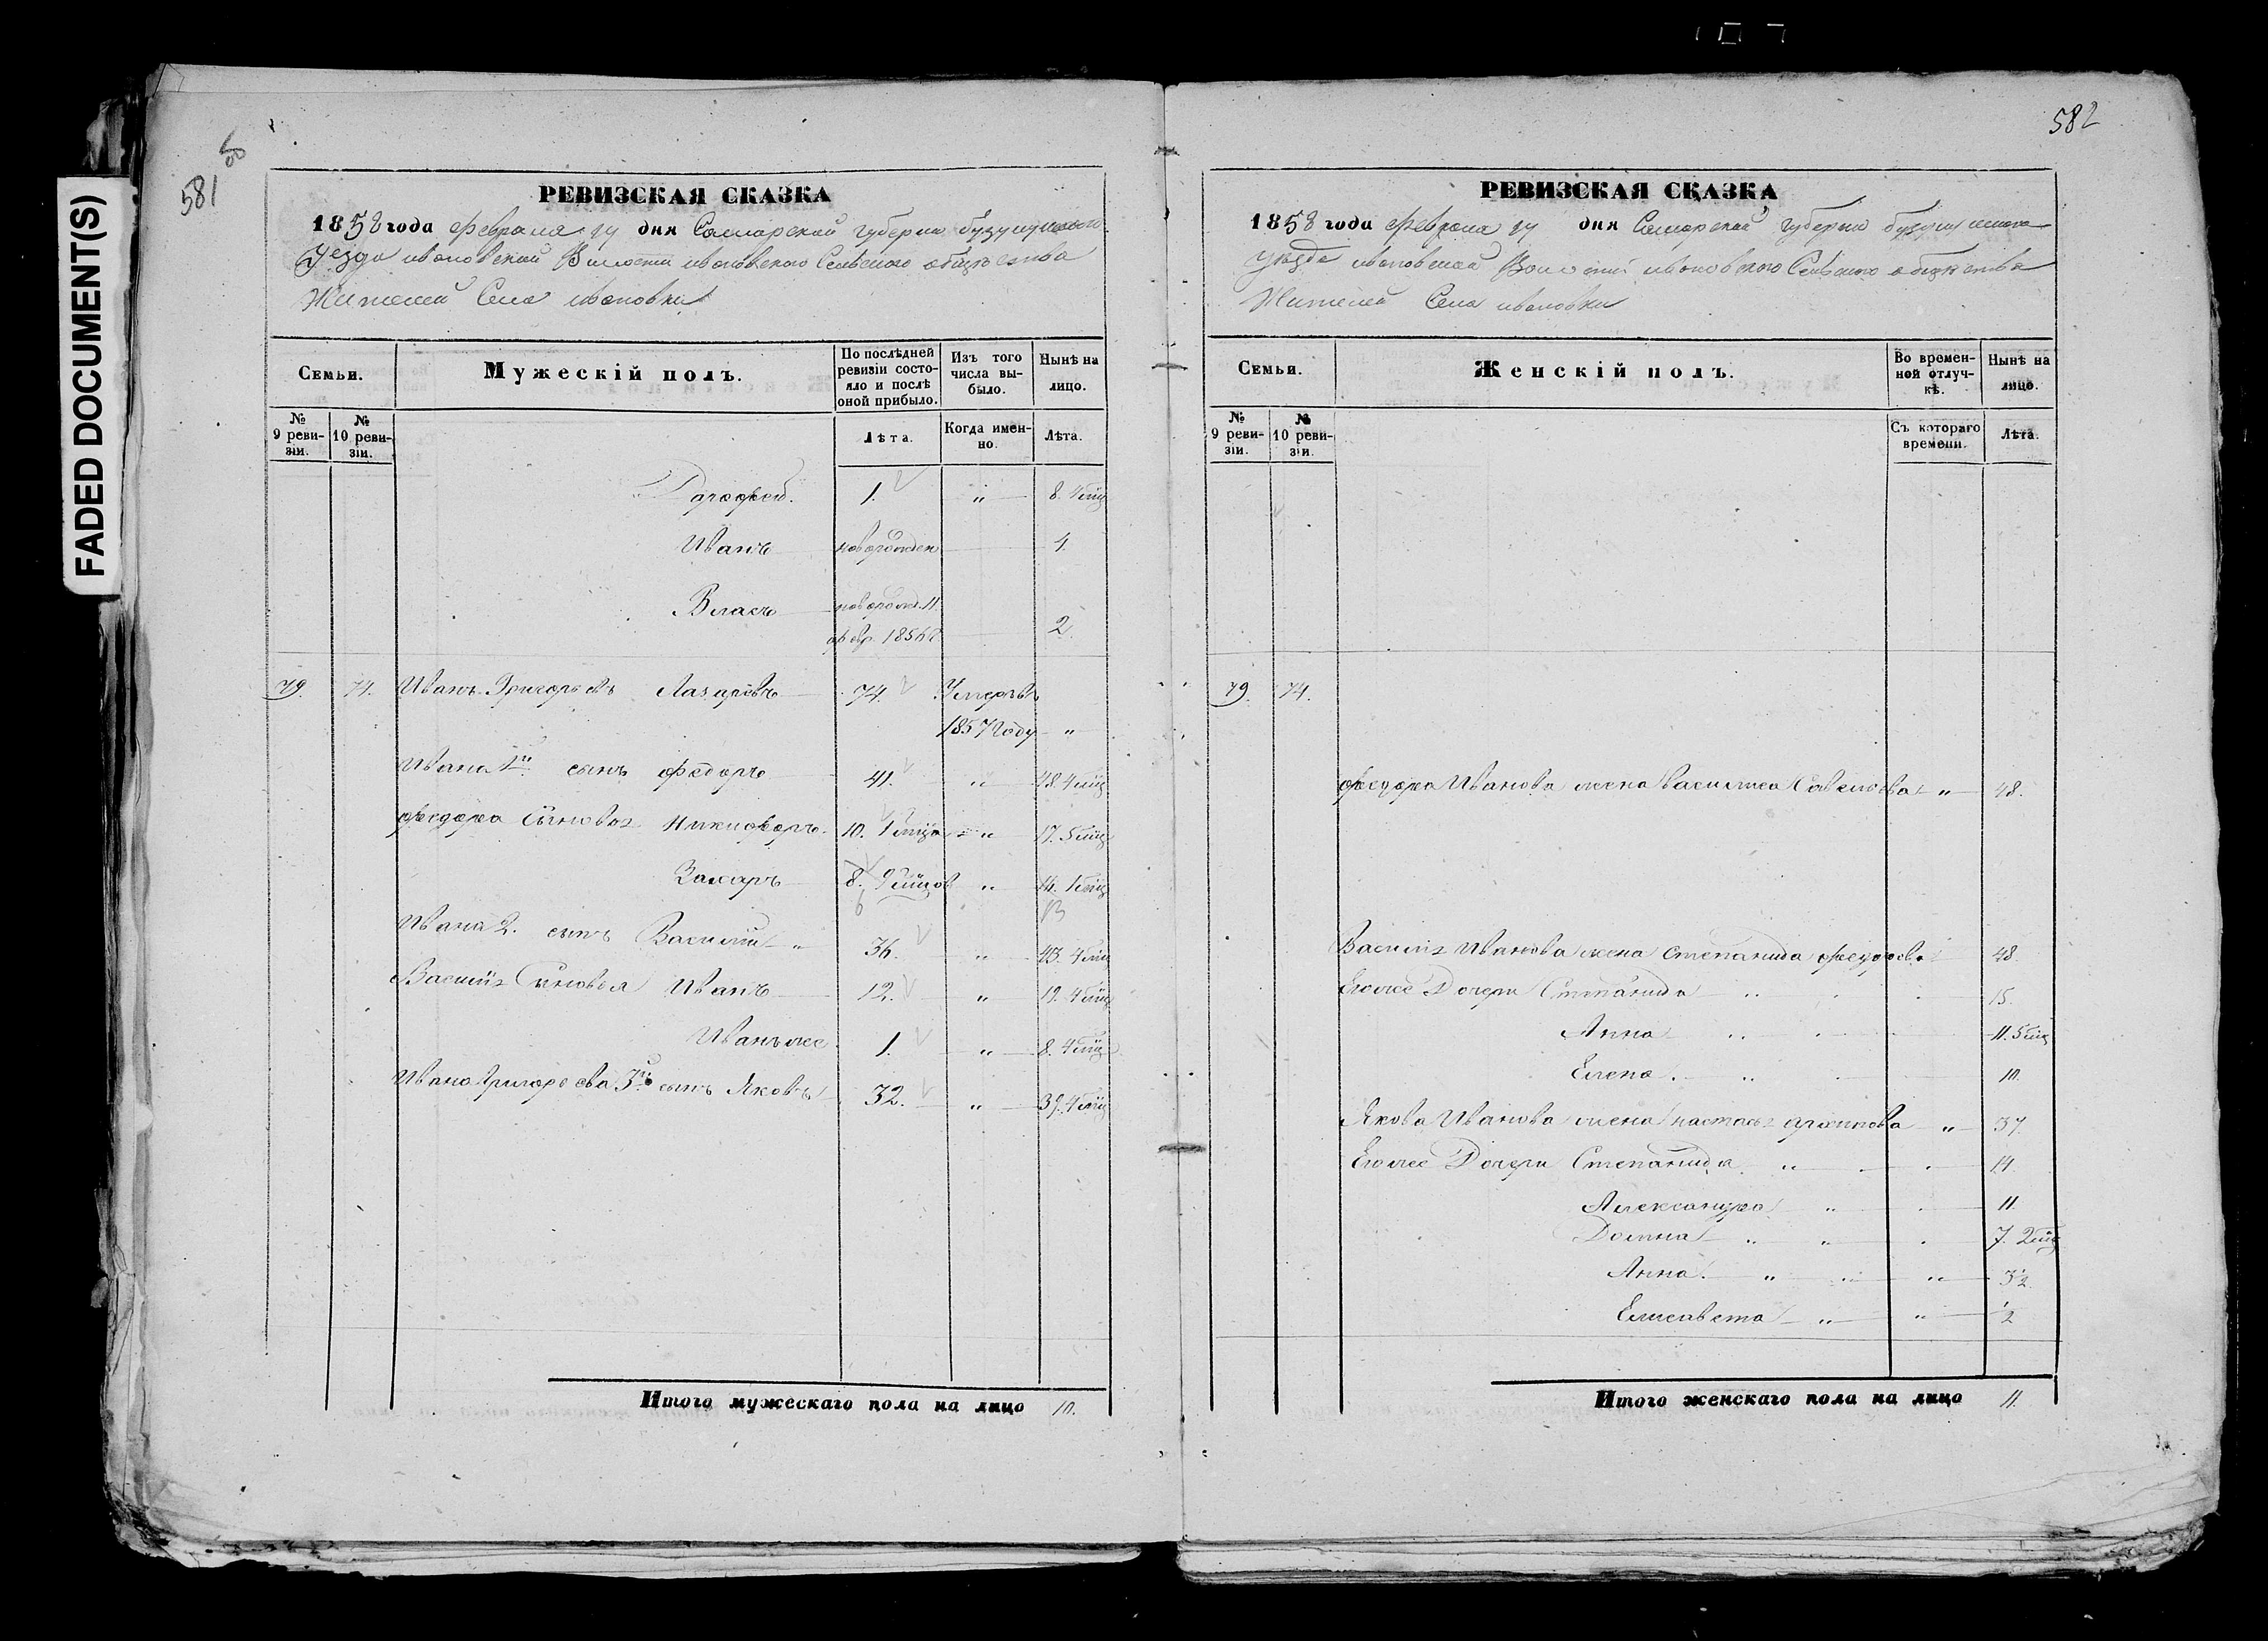 FADED DOCUMENT(S)
581
РЕВИЗСКАЯ СКАЗКА
1858 года февраля 14 дня Самарской губернии бузулуцкого
Уезда ивановской Волости ивановского Сельского общества
Жителей Села ивановки
Семьи.
Мужескій полъ.
По послѣдней ревизіи состояло и послѣ оной прибыло.
Изъ того числа выбыло.
Нынѣ на лицо.
№ 9 ревизіи.
№ 10 ревизіи.
Лѣта.
Когда именно.
Лѣта.
1. " 8. 4 мѣц
Иванъ новорожден 1.
Власъ новорожд. 11. 2.
79. 74. Иванъ Григорьевъ Лазаревъ 74. Умеръ въ
1857 году "
Ивана 1й сынъ федоръ 41. " 48. 4 мѣц
федора сыновья Никифоръ 10. " 17. 5 мѣц
Захаръ 8. 9 мѣцов "
6 13
Ивана 2. сынъ Василій " 36. " 43. 4 мѣц
Василія Сыновья Иванъ 12. " 19. 4 мѣц
Иванъ же 1. " 8. 4 мѣц
Ивана Григорьева 3й сынъ Яковъ 32. " 39. 4 мѣц
Итого мужескаго пола на лицо 10.
582
РЕВИЗСКАЯ СКАЗКА
1858 года февраля 14 дня Самарской губернии бузулуцкого
Уезда ивановской Волости ивановского Сельского общества
Жителей Села ивановки
Семьи.
Женскій полъ.
Во временной отлучкѣ.
Нынѣ на лицо.
№ 9 ревизіи.
№ 10 ревизіи.
Съ котораго времени.
Лѣта.
79. 74.
федора Иванова жена Василиса Савельева " 48.
Василія Иванова жена Степанида федорова 48.
Его же Дочери Степанида " 15.
Анна " 11. 5 мѣц
Елена " 10.
Якова Иванова жена настасья " 37.
Его же Дочери Степанида " 14
Александра " 11.
Домна " " 7. 2 мѣц
Анна. " " " 3½.
Елисавета " " ½
Итого женскаго пола на лицо 11.